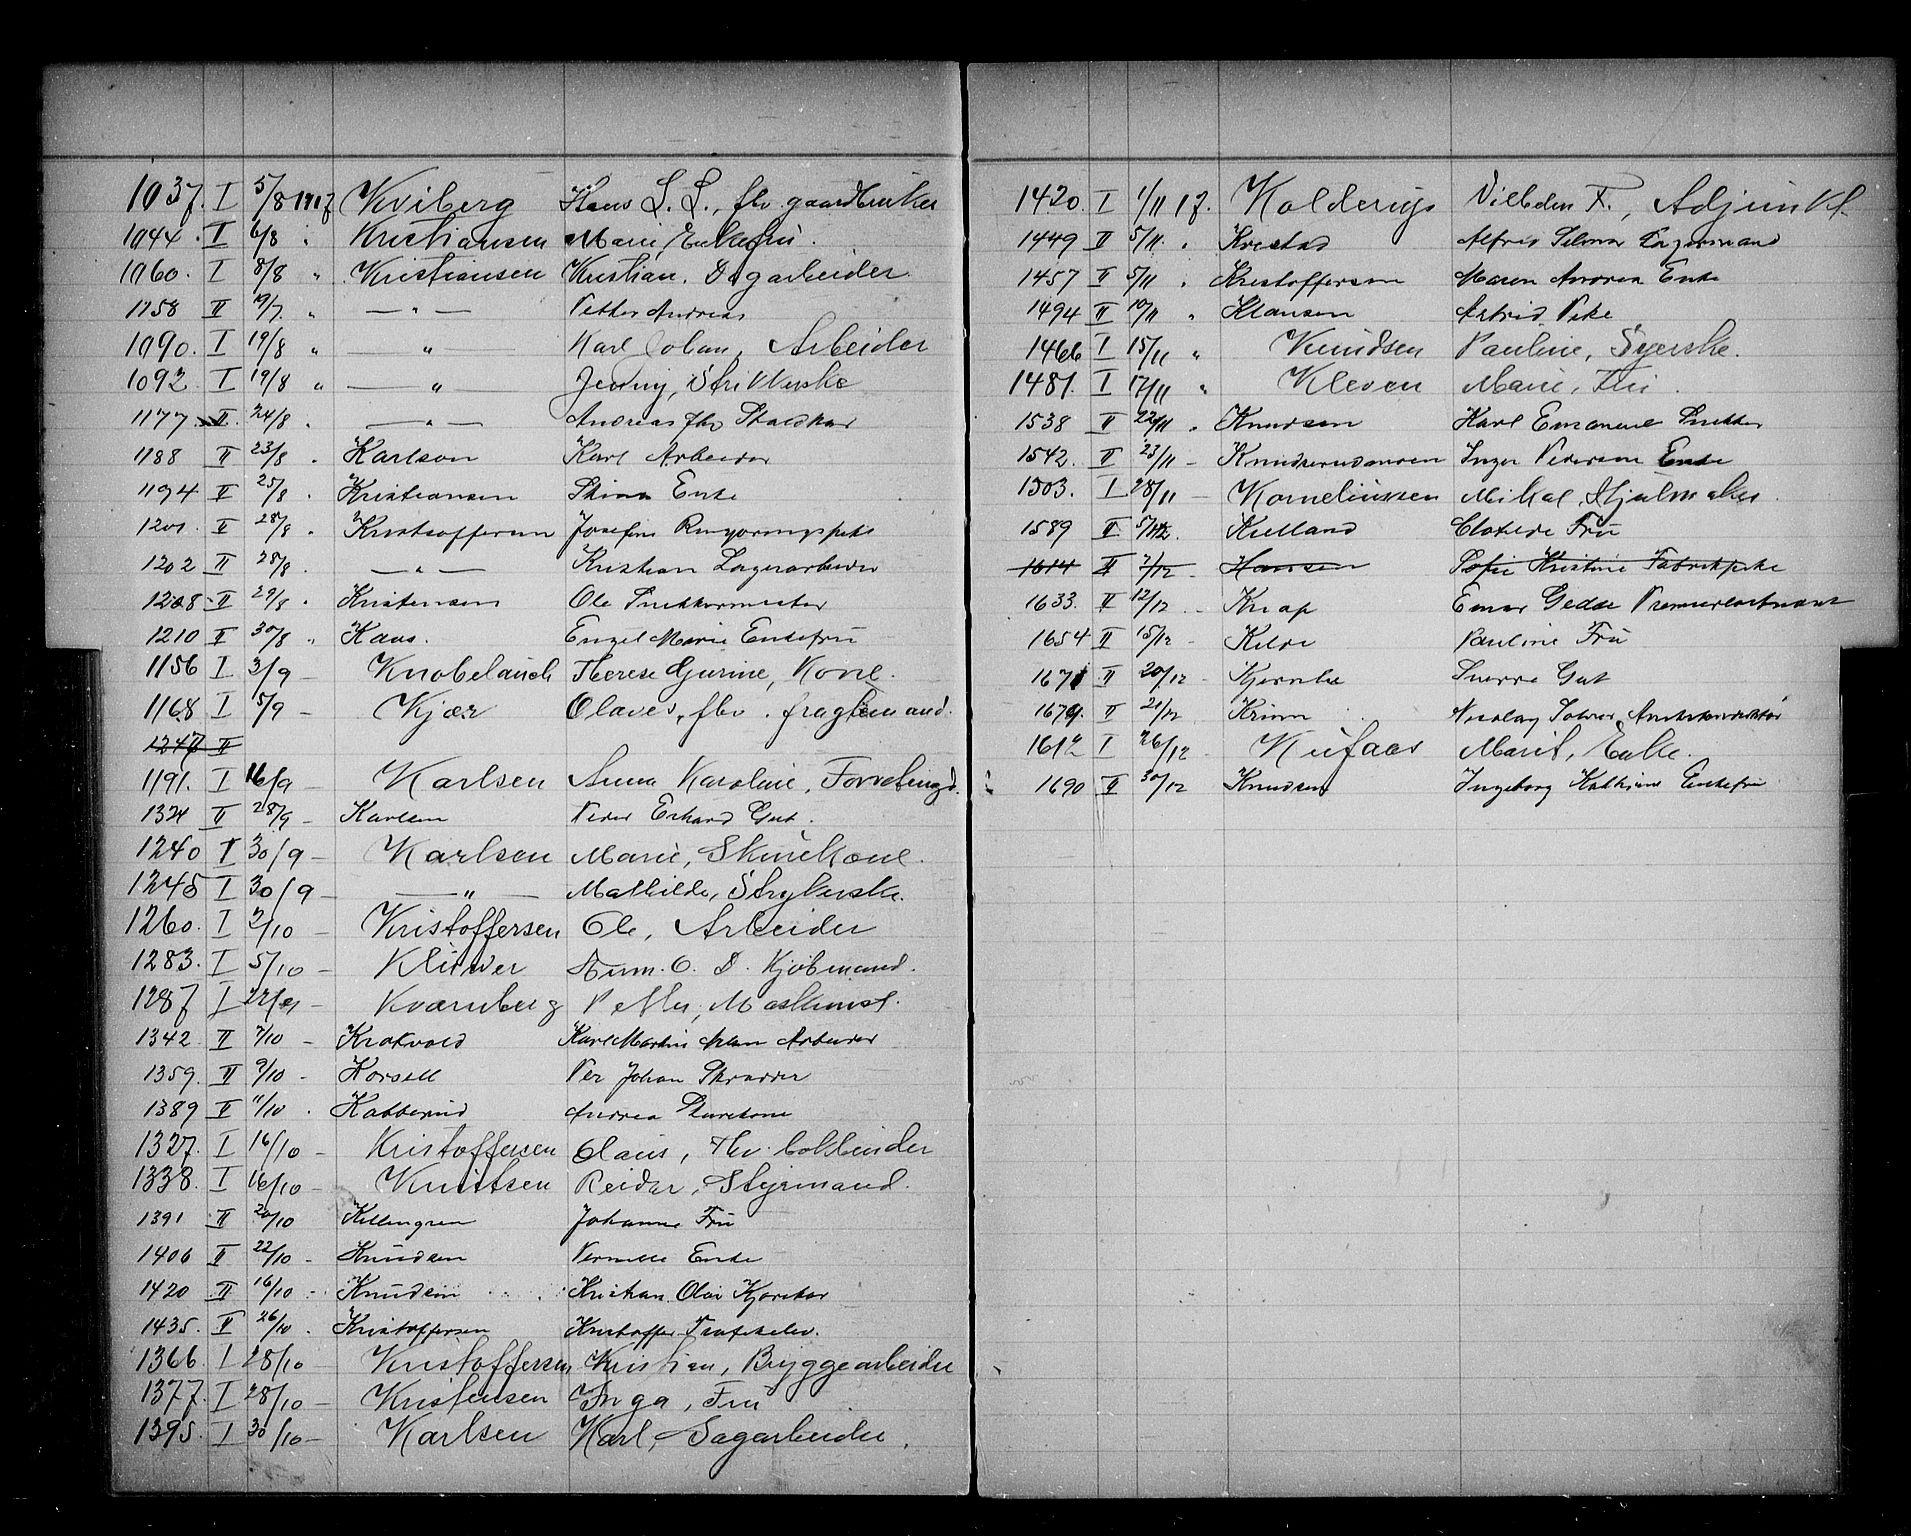 1037. I 5/8 1917 Kviberg Hans L. L., fhv. gaardbruker
1044. II 6/8 " Kristiansen Marie Enkefru.
1060. I 8/8 " Kristiansen Kristian. Dagarbeider
1158 II 19/7. " — " — Petter Andreas
1090. I 19/8 " — " Karl Johan, Arbeider
1092. I 19/8 " — " Jenny, Strikkerske
1177 II. 24/8 . — " — Andreas fhv
1188 II 23/8 . Karlson Karl Arbeider
1194 II 25/8 . Kristiansen Enke
1201. II 28/8 . Kristoffersen Josefine Rengjøringspike
1202 II 28/8. — " — Kristian Lagerarbeider
1208 II 29/8 . Kristensen Ole Snekkermester
1210 II 30/8 " Kaas. Engel Marie Enkefru
1156 I 3/9 — Knobelauch Therese Gurine, Kone.
1168 I 5/9 — Kjær Olaves, fhv. fragtemand.
1247 II
1191. I 16/9 — Karlsen Anna Karoline,
1324 II 28/9 — Karlsen Peder Erhard Gut.
1240 I 30/9 — Karlsen Marie, Skurekone.
1245 I 30/9 — — " — Mathilde, Strykerske.
1260. I 2/10 — Kristoffersen Ole, Arbeider
1283. I 5/10 — Klüwer Herm. O. D. Kjøbmand.
1287 I — Kvarnberg Petter, Maskinist.
1342 II 7/10 — Krokvold Karl Martin Arbeider
1359. II 9/10 - Korsell Per Johan Skrædder
1389 II 11/10 . Kabberud Andrea Skurekone
1327. I 16/10 — Kristoffersen Claus, Fhv. bokbinder
1338. I 16/10 — Knutsen Reidar, Styrmand.
1391 II 20/10 Killengren Johanne Fru
1406 II 22/10 - Knudsen Pernille Enke
1420 II 16/10 - Knudsen Kristian Olai Kjørekar
1435. II 26/10 . Kristoffersen Kristoffer
1366 I 28/10 — Kristoffersen Kristian, Bryggearbeider
1377. I 28/10 — Kristensen Inga, Fru
1395. I 30/10 — Karlsen Karl, Sagarbeider.
1420. I 1/11 17. Kolderup Vilhelm F., Adjunkt.
1449 II 5/11. " Kvistad Alfred Selmer Lagermand
1457 II 5/11 " Kristoffersen Maren Andrea Enke
1494 II 10/11 " Klausen Astrid Pike
1466 I 15/11 " Knudsen Pauline, Syerske.
1481. I 17/11 " Kleven Marie, Fru.
1538 II 22/11 " Knudsen Karl Emanuel Snekker
1542. II 23/11 - Inger Pedersen Enke
1503. I 28/11 — Korneliussen Mikal, Hjulmaker
1589 II 5/12. Kielland Clotilde Fru
1614 II 7/12 - Hansen Sofie Kristine Fabrikpike
1633. II 12/12 - Knap Einar Gedde Premierløitnant
1654 II 15/12 - Kilde Pauline Fru
1671 II 20/12 - Kjernlie Sverre Gut
1679. II 21/12 Krimm Nicolay
1612 I 26/12 - Kufaas Marit, Enke.
1690 II 30/12 Knudsen Ingeborg Kathrine Enkefru